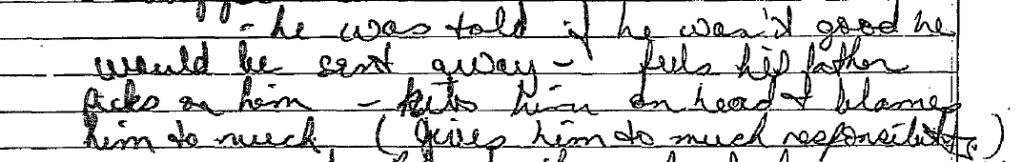 - he was told if he wasn't good he
would be sent away - feels his father
picks on him - hits him on head & blames
him to much (gives him to much responsibility.)